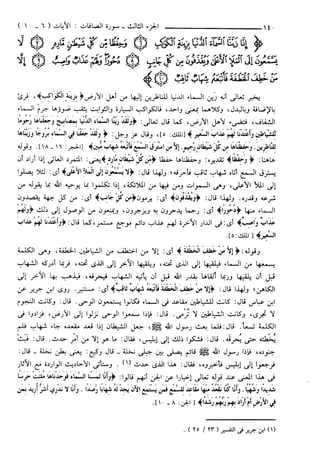 ١٤٠ الجزء الثالث - سورة الصافات : الآيات ( ٦ - ١٠ )
إِنَّا زَيَّنَّا السَّمَاءَ الدُّنْيَا بِزِينَةٍ الْكَوَاكِبِ وَحِفْظًا مِنْ كُلِّ شَيْطَانٍ مَارِدٍ لَا
يَسَّمَّعُونَ إِلَى الْمَلَإِ الْأَعْلَى وَيُقْذَفُونَ مِنْ كُلِّ جَانِبٍ دُحُورًا وَلَهُمْ عَذَابٌ وَاصِبٌ إِلَّا
مَنْ خَطِفَ الْخَطْفَةَ فَأَتْبَعَهُ شِهَابٌ ثَاقِبٌ
يخبر تعالى أنه زين السماء الدنيا للناظرين إليها من أهل الأرض ﴿بِزِينَةٍ الْكَوَاكِبِ﴾، قرئ
بالإضافة وبالبدل، وكلاهما بمعنى واحد، فالكواكب السيارة والثوابت يثقب ضوؤها جرم السماء
الشفاف، فتضيء لأهل الأرض، كما قال تعالى: ﴿وَلَقَدْ زَيَّنَّا السَّمَاءَ الدُّنْيَا بِمَصَابِيحَ وَجَعَلْنَاهَا رُجُومًا
لِلشَّيَاطِينِ وَأَعْتَدْنَا لَهُمْ عَذَابَ السَّعِيرِ﴾ [الملك: ٥]، وقال عز وجل: ﴿وَلَقَدْ جَعَلْنَا فِي السَّمَاءِ بُرُوجًا وَزَيَّنَّاهَا
لِلنَّاظِرِينَ. وَحَفِظْنَاهَا مِنْ كُلِّ شَيْطَانٍ رَجِيمٍ. إِلَّا مَنِ اسْتَرَقَ السَّمْعَ فَأَتْبَعَهُ شِهَابٌ مُبِينٌ﴾ [الحجر: ١٦ - ١٨]. وقوله
هاهنا: ﴿وَحِفْظًا﴾ تقديره: وحفظناها حفظا ﴿مِنْ كُلِّ شَيْطَانٍ مَارِدٍ﴾ يعني: المتمرد العاتي إذا أراد أن
يسترق السمع أتاه شهاب ثاقب فأحرقه؛ ولهذا قال: ﴿لَا يَسَّمَّعُونَ إِلَى الْمَلَإِ الْأَعْلَى﴾ أي: لئلا يصلوا
إلى الملأ الأعلى، وهي السموات ومن فيها من الملائكة، إذا تكلموا بما يوحيه الله بما يقوله من
شرعه وقدره. ولهذا قال: ﴿وَيُقْذَفُونَ﴾ أي: يرمون ﴿مِنْ كُلِّ جَانِبٍ﴾ أي: من كل جهة يقصدون
السماء منها ﴿دُحُورًا﴾ أي: رجما يدحرون به ويزجرون، ويمنعون من الوصول إلى ذلك ﴿وَلَهُمْ
عَذَابٌ وَاصِبٌ﴾ أي: في الدار الآخرة لهم عذاب دائم موجع مستمر، كما قال: ﴿وَأَعْتَدْنَا لَهُمْ عَذَابَ
السَّعِيرِ﴾ [الملك: ٥].
وقوله: ﴿إِلَّا مَنْ خَطِفَ الْخَطْفَةَ﴾ أي: إلا من اختطف من الشياطين الخطفة، وهي الكلمة
يسمعها من السماء فيلقيها إلى الذي تحته، ويلقيها الآخر إلى الذي تحته، فربما أدركه الشهاب
قبل أن يلقيها وربما ألقاها بقدر الله قبل أن يأتيه الشهاب فيحرقه، فيذهب بها الآخر إلى
الكاهن؛ ولهذا قال: ﴿إِلَّا مَنْ خَطِفَ الْخَطْفَةَ فَأَتْبَعَهُ شِهَابٌ ثَاقِبٌ﴾ أي: مستنير. روى ابن جرير عن
ابن عباس قال: كانت للشياطين مقاعد في السماء فكانوا يستمعون الوحي. قال: وكانت النجوم
لا تجري، وكانت الشياطين لا تُرْمى. قال: فإذا سمعوا الوحي نزلوا إلى الأرض، فزادوا في
الكلمة تسعاً. قال: فلما بعث رسول الله ﷺ، جعل الشيطان إذا قعد مقعده جاء شهاب فلم
يُخْطئه حتى يُحرقه. قال: فشكوا ذلك إلى إبليس، فقال: ما هو إلا من أمر حدث. قال: فبَثَّ
جنوده، فإذا رسول الله ﷺ قائم يصلي بين جبلي نخلة - قال وكيع: يعني بطن نخلة - قال:
فرجعوا إلى إبليس فأخبروه، فقال: هذا الذي حدث (١) . وستأتي الأحاديث الواردة مع الآثار
في هذا المعنى عند قوله تعالى إخبارا عن الجن أنهم قالوا: ﴿وَأَنَّا لَمَسْنَا السَّمَاءَ فَوَجَدْنَاهَا مُلِئَتْ حَرَسًا
شَدِيدًا وَشُهُبًا. وَأَنَّا كُنَّا نَقْعُدُ مِنْهَا مَقَاعِدَ لِلسَّمْعِ فَمَنْ يَسْتَمِعِ الْآنَ يَجِدْ لَهُ شِهَابًا رَصَدًا. وَأَنَّا لَا نَدْرِي أَشَرٌّ أُرِيدَ بِمَنْ
فِي الْأَرْضِ أَمْ أَرَادَ بِهِمْ رَبُّهُمْ رَشَدًا﴾ [الجن: ٨ - ١٠].
(١) ابن جرير في التفسير (٢٣ / ٢٥) .